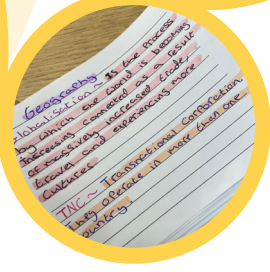 Geography
Globalisation ~ Is the process
by which the world is becoming
increasing connected as a result
of massively increased trade,
travel and experiencing more
cultures
TNC ~ Transnational Corporation.
They operate in more than one
country